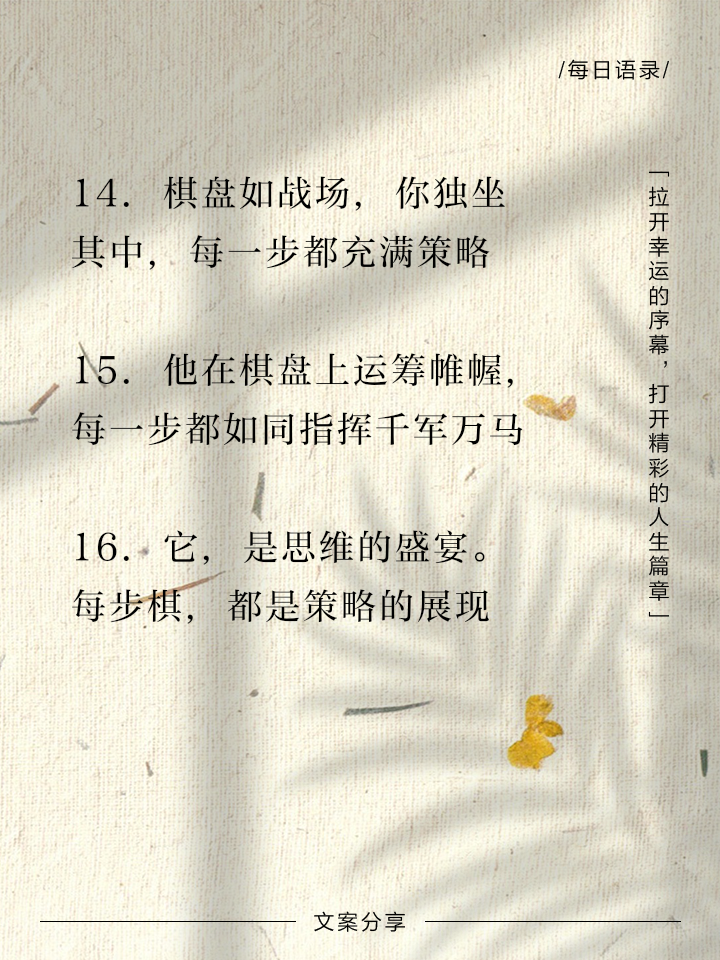 /每日语录/
14. 棋盘如战场, 你独坐
其中, 每一步都充满策略
15. 他在棋盘上运筹帷幄,
每一步都如同指挥千军万马
16. 它, 是思维的盛宴。
每步棋, 都是策略的展现
「拉开幸运的序幕，打开精彩的人生篇章」
文案分享